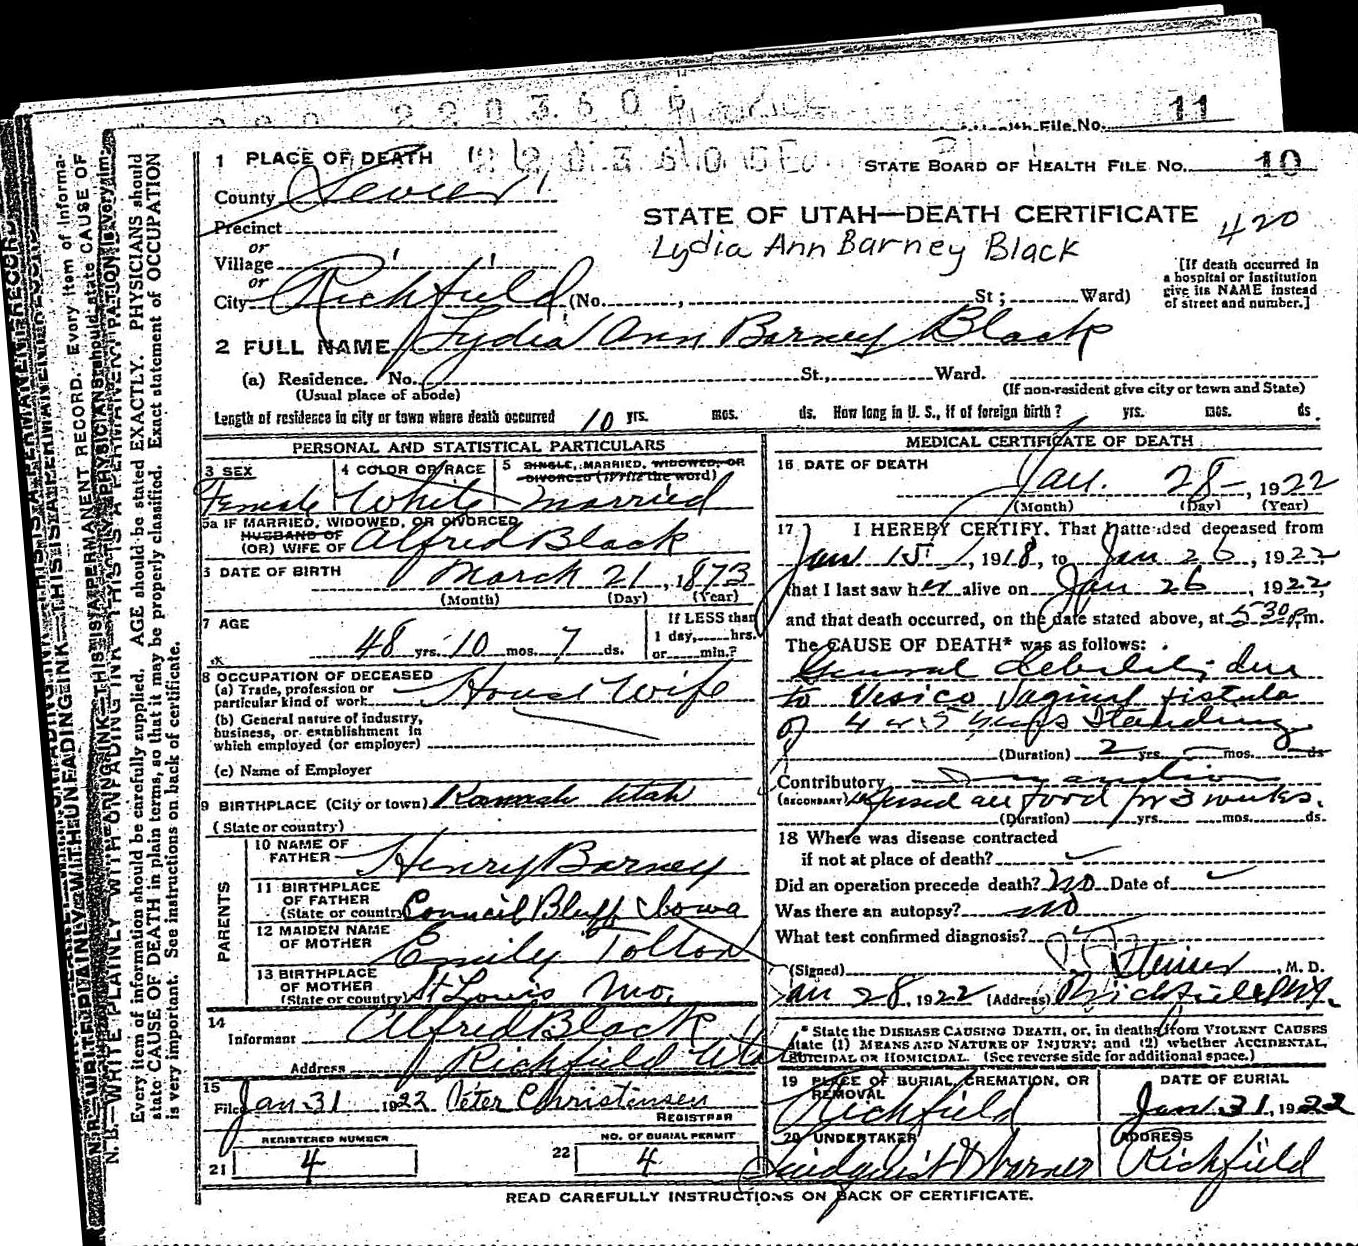 11
Health File No.
1 PLACE OF DEATH
STATE BOARD OF HEALTH FILE No. 10
County Sevier
STATE OF UTAH—DEATH CERTIFICATE
420
Precinct
Lydia Ann Barney Black
or
Village
or
[If death occurred in
a hospital or institution
give its NAME instead
of street and number.]
City Richfield (No. , St ; Ward)
2 FULL NAME Lydia Ann Barney Black
(a) Residence. No. St., Ward.
(Usual place of abode) (If non-resident give city or town and State)
Length of residence in city or town where death occurred 10 yrs. mos. ds. How long in U. S., if of foreign birth? yrs. mos. ds.
PERSONAL AND STATISTICAL PARTICULARS
3 SEX 4 COLOR OR RACE 5 SINGLE, MARRIED, WIDOWED, OR
DIVORCED (write the word)
Female White Married
5a IF MARRIED, WIDOWED, OR DIVORCED
HUSBAND OF
(OR) WIFE OF Alfred Black
DATE OF BIRTH March 21, 1873
(Month) (Day) (Year)
7 AGE If LESS than
1 day, hrs.
48 yrs. 10 mos. 7 ds. or min.?
8 OCCUPATION OF DECEASED
(a) Trade, profession or
particular kind of work House Wife
(b) General nature of industry,
business, or establishment in
which employed (or employer)
(c) Name of Employer
9 BIRTHPLACE (City or town) Kanosh Utah
(State or country)
PARENTS
10 NAME OF
FATHER Henry Barney
11 BIRTHPLACE
OF FATHER
(State or country) Council Bluff Iowa
12 MAIDEN NAME
OF MOTHER Emily Tolton
13 BIRTHPLACE
OF MOTHER
(State or country) St Louis Mo.
14
Informant Alfred Black
Address Richfield Utah
15
Filed Jan 31 1922 Peter Christensen
REGISTRAR
REGISTERED NUMBER NO. OF BURIAL PERMIT
21 4 22 4
MEDICAL CERTIFICATE OF DEATH
16 DATE OF DEATH
Jan. 28, 1922
(Month) (Day) (Year)
17 I HEREBY CERTIFY. That I attended deceased from
Jan 15, 1918, to Jan 26, 1922,
that I last saw her alive on Jan 26, 1922,
and that death occurred, on the date stated above, at 5 30 p.m.
The CAUSE OF DEATH* was as follows:
General debility; due
to Vesico Vaginal fistula
of 4 or 5 years standing
(Duration) 2 yrs. mos. ds
Contributory Inanition
(SECONDARY) Refused all food for 3 weeks.
(Duration) yrs. mos. ds.
18 Where was disease contracted
if not at place of death?
Did an operation precede death? No Date of
Was there an autopsy? no
What test confirmed diagnosis?
(Signed) , M. D.
Jan 28, 1922 (Address) Richfield
* State the DISEASE CAUSING DEATH, or, in deaths from VIOLENT CAUSES
state (1) MEANS AND NATURE OF INJURY; and (2) whether ACCIDENTAL,
SUICIDAL OR HOMICIDAL. (See reverse side for additional space.)
19 PLACE OF BURIAL, CREMATION, OR
REMOVAL
Richfield
DATE OF BURIAL
Jan 31, 1922
20 UNDERTAKER
Warner
ADDRESS
Richfield
READ CAREFULLY INSTRUCTIONS ON BACK OF CERTIFICATE.
N. B.—WRITE PLAINLY WITH UNFADING INK—THIS IS A PERMANENT RECORD. Every item of informa-
Every item of information should be carefully supplied. AGE should be stated EXACTLY. PHYSICIANS should
state CAUSE OF DEATH in plain terms, so that it may be properly classified. Exact statement of OCCUPATION
is very important. See instructions on back of certificate.